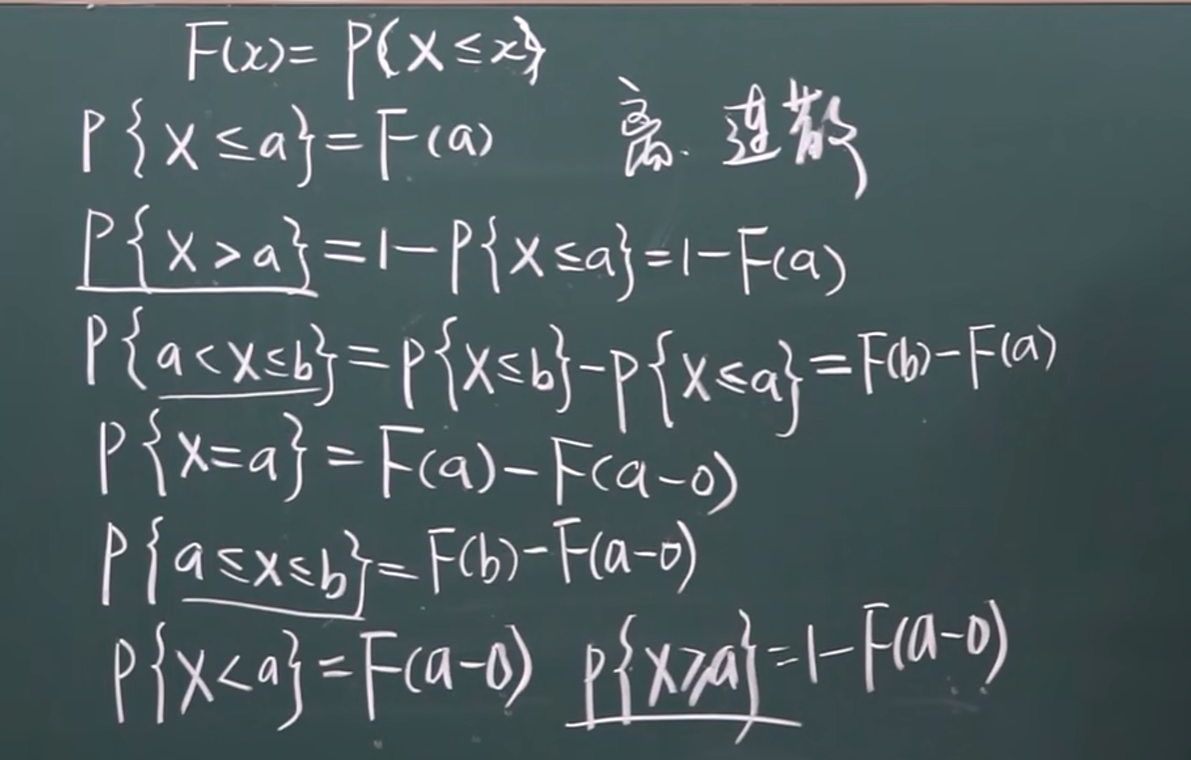 F(x)=P{X≤x}
P{X≤a}=F(a) 离. 连散
P{X>a}=1-P{X≤a}=1-F(a)
P{a<X≤b}=P{X≤b}-P{X≤a}=F(b)-F(a)
P{X=a}=F(a)-F(a-0)
P{a≤X≤b}=F(b)-F(a-0)
P{X<a}=F(a-0) P{X≥a}=1-F(a-0)